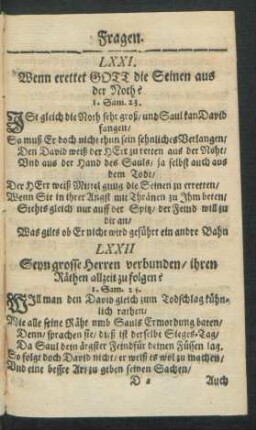 Fragen.
LXXI.
Wenn erettet GOTT die Seinen aus
der Noth?
1. Sam. 23.
ISt gleich die Noth sehr groß/ und Saul kan David
fangen/
So muß Er doch nicht thun sein sehnliches Verlangen/
Den David weiß der HErr zu retten aus der Noht/
Und aus der Hand des Sauls/ ja selbst auch aus
dem Tode/
Der HErr weiß Mittel gnug die Seinen zu erretten/
Wenn Sie in ihrer Angst mit Thränen zu Ihm beten/
Stehts gleich nur auff der Spitz/ der Feind will zu
dir an/
Was gilts ob Er nicht wird geführt ein andre Bahn
LXXII
Seyn grosse Herren verbunden/ ihren
Räthen allzeit zu folgen?
1. Sam. 24.
WIll man den David gleich zum Todschlag kühn-
lich rathen/
Wie alle seine Räht umb Sauls Ermordung baten/
Denn/ sprachen sie/ diß ist derselbe Sieges-Tag/
Da Saul dein ärgster Feind für deinen Füssen lag.
So folgt doch David nicht/ er weiß es wol zu machen/
Und eine bessre Art zu geben seinen Sachen/
D 2
Auch